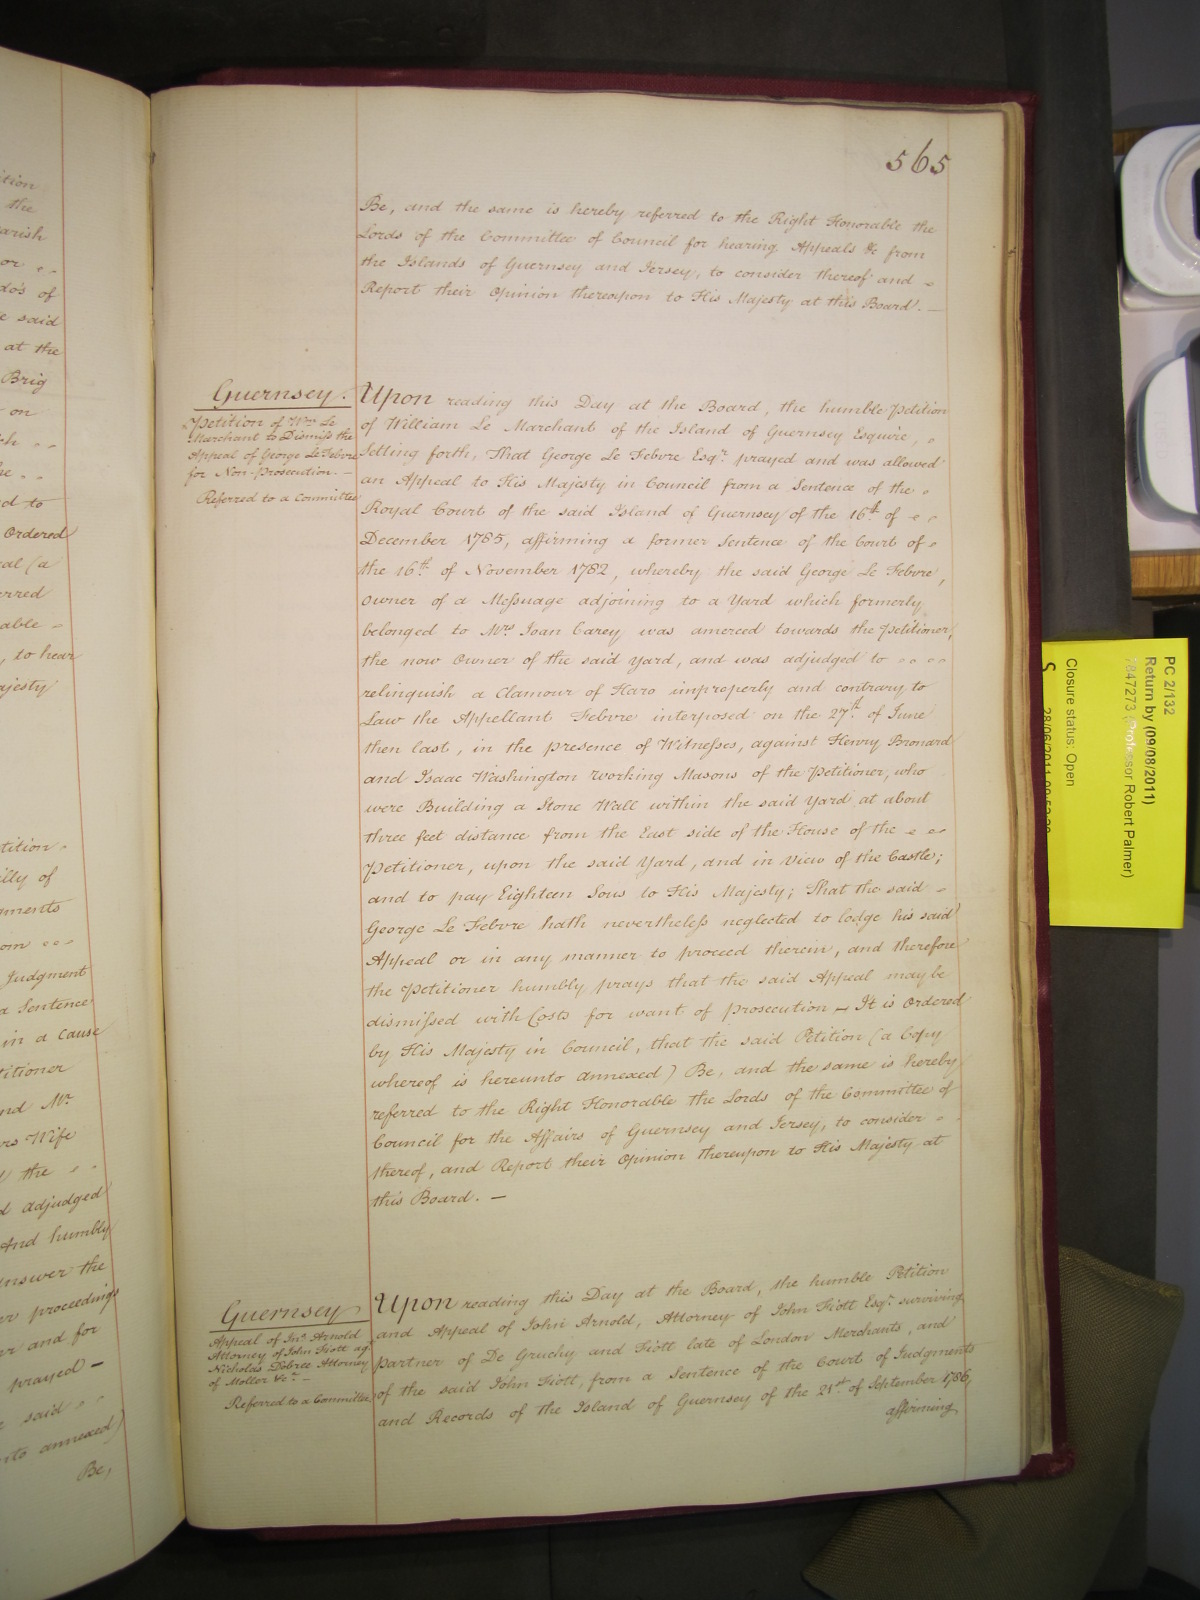 565
Be, and the same is hereby referred to the Right Honorable the
Lords of the Committee of Council for hearing Appeals &c from
the Islands of Guernsey and Jersey, to consider thereof and
Report their Opinion thereupon to His Majesty at this Board. —
Guernsey.
Petition of Wm. Le
Marchant to Dismiss the
Appeal of George Le Febvre
for Non-Prosecution. —
Referred to a Committee
Upon reading this Day at the Board, the humble Petition
of William Le Marchant of the Island of Guernsey Esquire,
Setting forth, That George Le Febvre Esqr. prayed and was allowed
an Appeal to His Majesty in Council from a Sentence of the
Royal Court of the said Island of Guernsey of the 16th of
December 1785, affirming a former Sentence of the Court of
the 16th of November 1782, whereby the said George Le Febvre,
Owner of a Messuage adjoining to a Yard which formerly
belonged to Mrs Joan Carey was amerced towards the Petitioner,
the now Owner of the said Yard, and was adjudged to
relinquish a Clamour of Haro improperly and contrary to
Law the Appellant Febvre interposed on the 27th of June
then last, in the presence of Witnesses, against Henry Bronard
and Isaac Washington working Masons of the Petitioner, who
were Building a Stone Wall within the said Yard at about
three feet distance from the East side of the House of the
Petitioner, upon the said Yard, and in view of the Castle;
and to pay Eighteen Sous to His Majesty; That the said
George Le Febvre hath nevertheless neglected to lodge his said
Appeal or in any manner to proceed therein, and therefore
the Petitioner humbly prays that the said Appeal may be
dismissed with Costs for want of prosecution — It is Ordered
by His Majesty in Council, that the said Petition (a Copy
whereof is hereunto annexed) Be, and the same is hereby
referred to the Right Honorable the Lords of the Committee of
Council for the Affairs of Guernsey and Jersey, to consider
thereof, and Report their Opinion thereupon to His Majesty at
this Board. —
Guernsey
Appeal of Jno. Arnold
Attorney of John Fiott agt
Nicholas Dobree Attorney
of Moller &c. —
Referred to a Committee
Upon reading this Day at the Board, the humble Petition
and Appeal of John Arnold, Attorney of John Fiott Esqr. surviving
partner of De Gruchy and Fiott late of London Merchants, and
of the said John Fiott, from a Sentence of the Court of Judgments
and Records of the Island of Guernsey of the 21st of September 1786,
affirming
ition
the
arish
or
do's of
e said
at the
Brig
on
d to
Ordered
al (a
erred
able
, to hear
ajesty
tition
illy of
gments
om
Judgment
a Sentence
in a Cause
titioner
nd Mr
ers Wife
the
d adjudged
And humbly
answer the
er proceedings
er and for
prayed —
said
nto annexed)
Be,
PC 2/132
Return by (09/08/2011)
7847273 (Professor Robert Palmer)
Closure status: Open
S